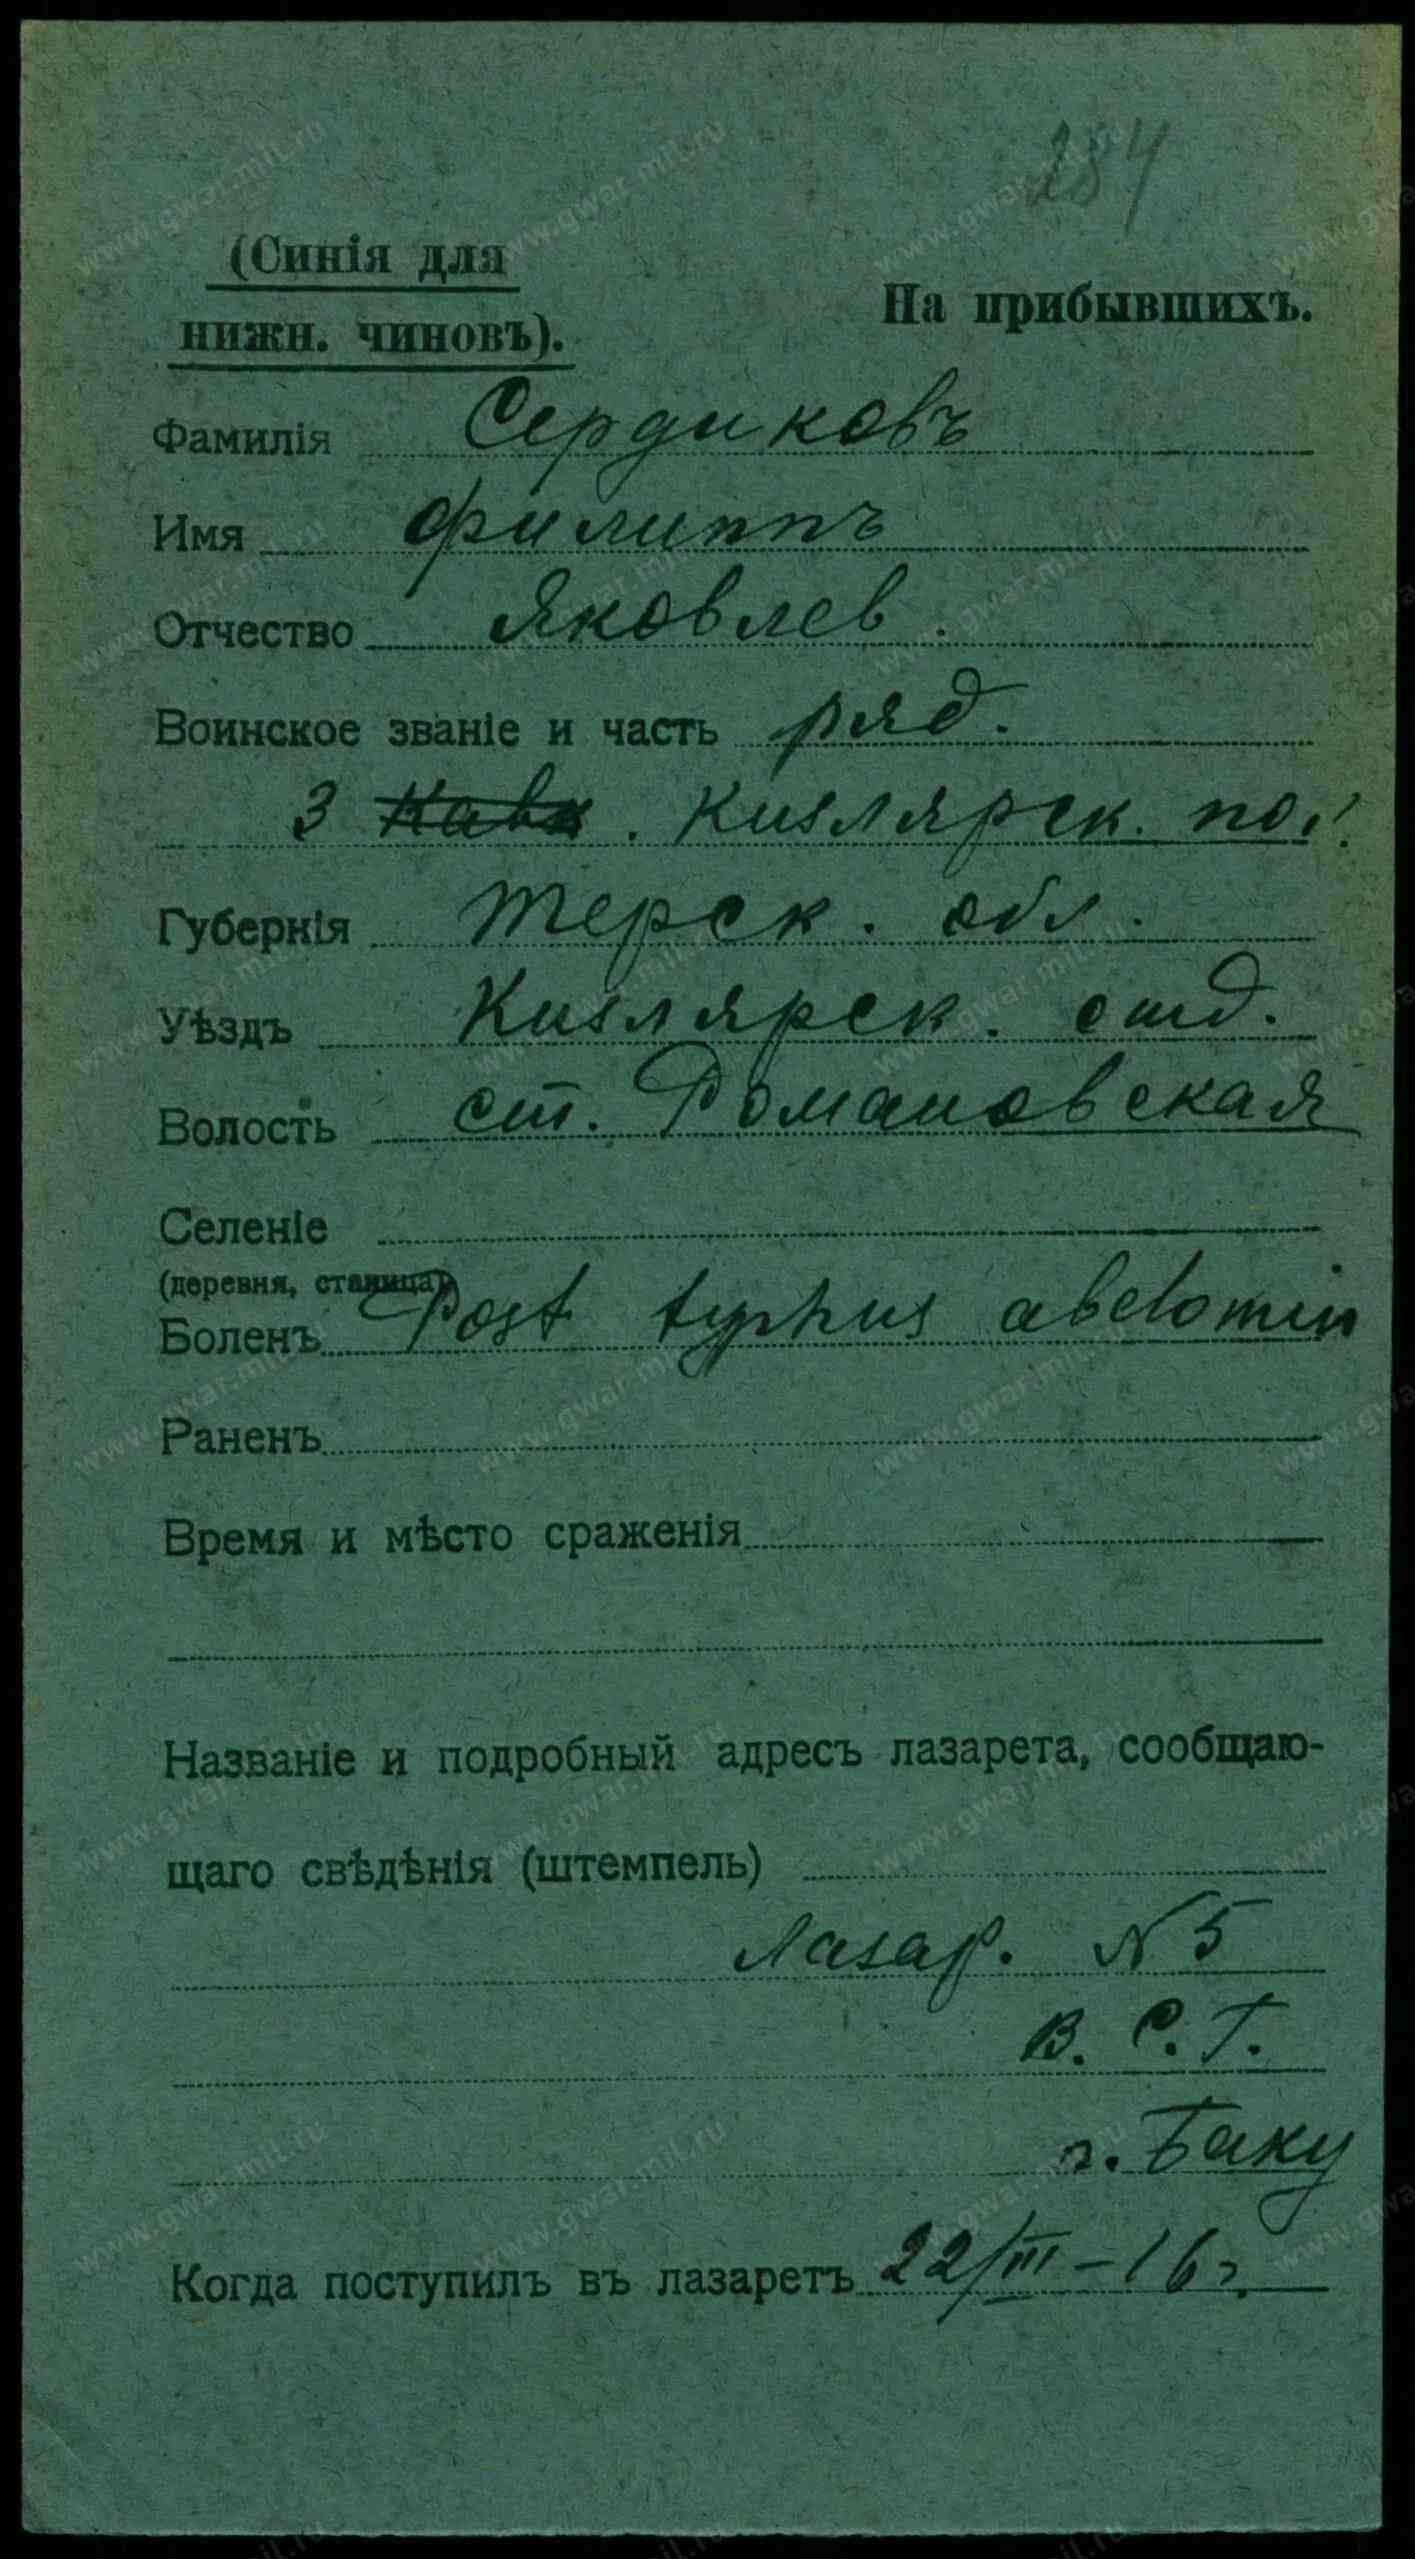 284
(Синія для
нижн. чиновъ).
На прибывшихъ.
Фамилія Сердиковъ
Имя Филиппъ
Отчество Яковлев.
Воинское званіе и часть ряд.
3 Кавк. Кизлярск. пол.
Губернія Терск. обл.
Уѣздъ Кизлярск. отд.
Волость ст. Романовская
Селеніе
(деревня, станица)
Боленъ Post typhus abdomin
Раненъ
Время и мѣсто сраженія
Названіе и подробный адресъ лазарета, сообщаю-
щаго свѣдѣнія (штемпель)
Лазар. N 5
В. С. Г.
г. Баку
Когда поступилъ въ лазаретъ 22/III – 16 г.
www.gwar.mil.ru